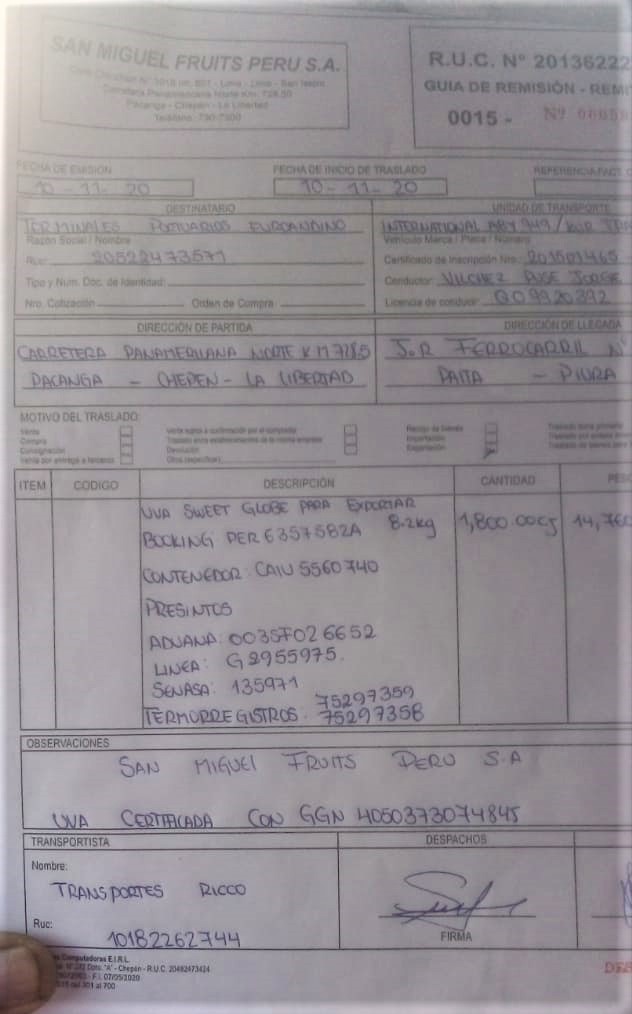 SAN MIGUEL FRUITS PERU S.A.
Carretera Panamericana Norte Km. 728.50
Pacanga - Chepén - La Libertad
R.U.C. Nº 20136222
GUIA DE REMISIÓN - REMI
0015 - Nº
FECHA DE EMISIÓN
10-11-20
FECHA DE INICIO DE TRASLADO
10-11-20
REFERENCIA FACT.
DESTINATARIO
TERMINALES PORTUARIOS EUROANDINO
Razón Social / Nombre
Ruc: 20522473571
Tipo y Num. Doc. de Identidad:
Nro. Cotización Orden de Compra:
UNIDAD DE TRANSPORTE
INTERNATIONAL
Vehículo Marca / Placa / Número
Certificado de Inscripción Nro. 201501465
Conductor: VILCHEZ JORGE
Licencia de conducir: Q09920392
DIRECCIÓN DE PARTIDA
CARRETERA PANAMERICANA NORTE KM 728.5
PACANGA - CHEPEN - LA LIBERTAD
DIRECCIÓN DE LLEGADA
J.R FERROCARRIL Nº
PAITA - PIURA
MOTIVO DEL TRASLADO:
Venta
Compra
Consignación
Venta por entrega a terceros
Venta sujeta a confirmación por el comprador
Traslado entre establecimientos de la misma empresa
Devolución
Otros (especificar)
Recojo de bienes
Importación
Exportación
ITEM CÓDIGO DESCRIPCIÓN CANTIDAD PESO
UVA SWEET GLOBE PARA EXPORTAR
BOOKING PER6357582A 8.2kg 1,800.00cj 14,760
CONTENEDOR: CAIU 5560740
PRESINTOS
ADUANA: 0035F026652
LINEA: G2955975.
SENASA: 135971
75297359
TERMORREGISTROS: 75297358
OBSERVACIONES
SAN MIGUEL FRUITS PERU S.A
UVA CERTIFICADA CON GGN 4050373074845
TRANSPORTISTA
Nombre:
TRANSPORTES RICCO
Ruc:
10182262744
DESPACHOS
FIRMA
Computadoras E.I.R.L.
"A" - Chepén - R.U.C. 20482473424
F.I. 07/05/2020
del 301 al 700
DES